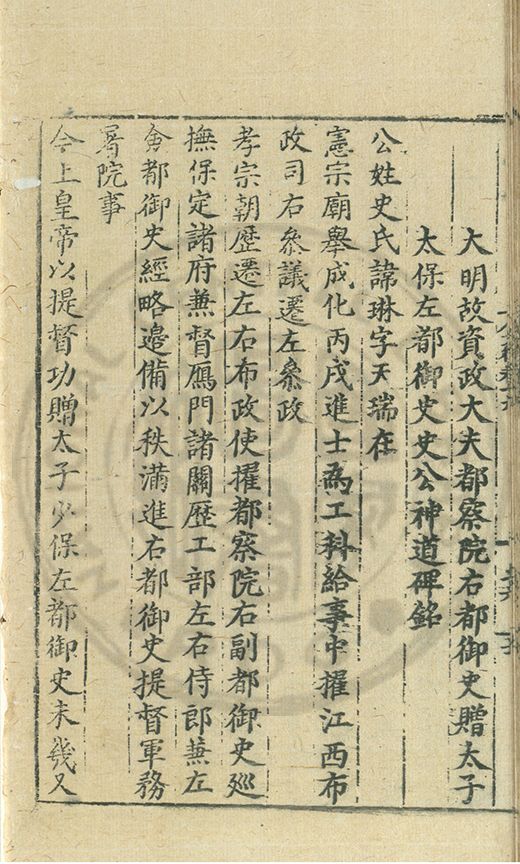 大明故資政大夫都察院右都御史贈太子
太保左都御史史公神道碑銘
公姓史氏諱琳字天瑞在
憲宗廟舉成化丙戌進士為工科給事中擢江西布
政司右叅議遷左叅政
孝宗朝歷遷左右布政使擢都察院右副都御史廵
撫保定諸府兼督鴈門諸關歷工部左右侍郎兼左
僉都御史經略邉備以秩滿進右都御史提督軍務
㫺院事
今上皇帝以提督功贈太子少保左都御史未幾又